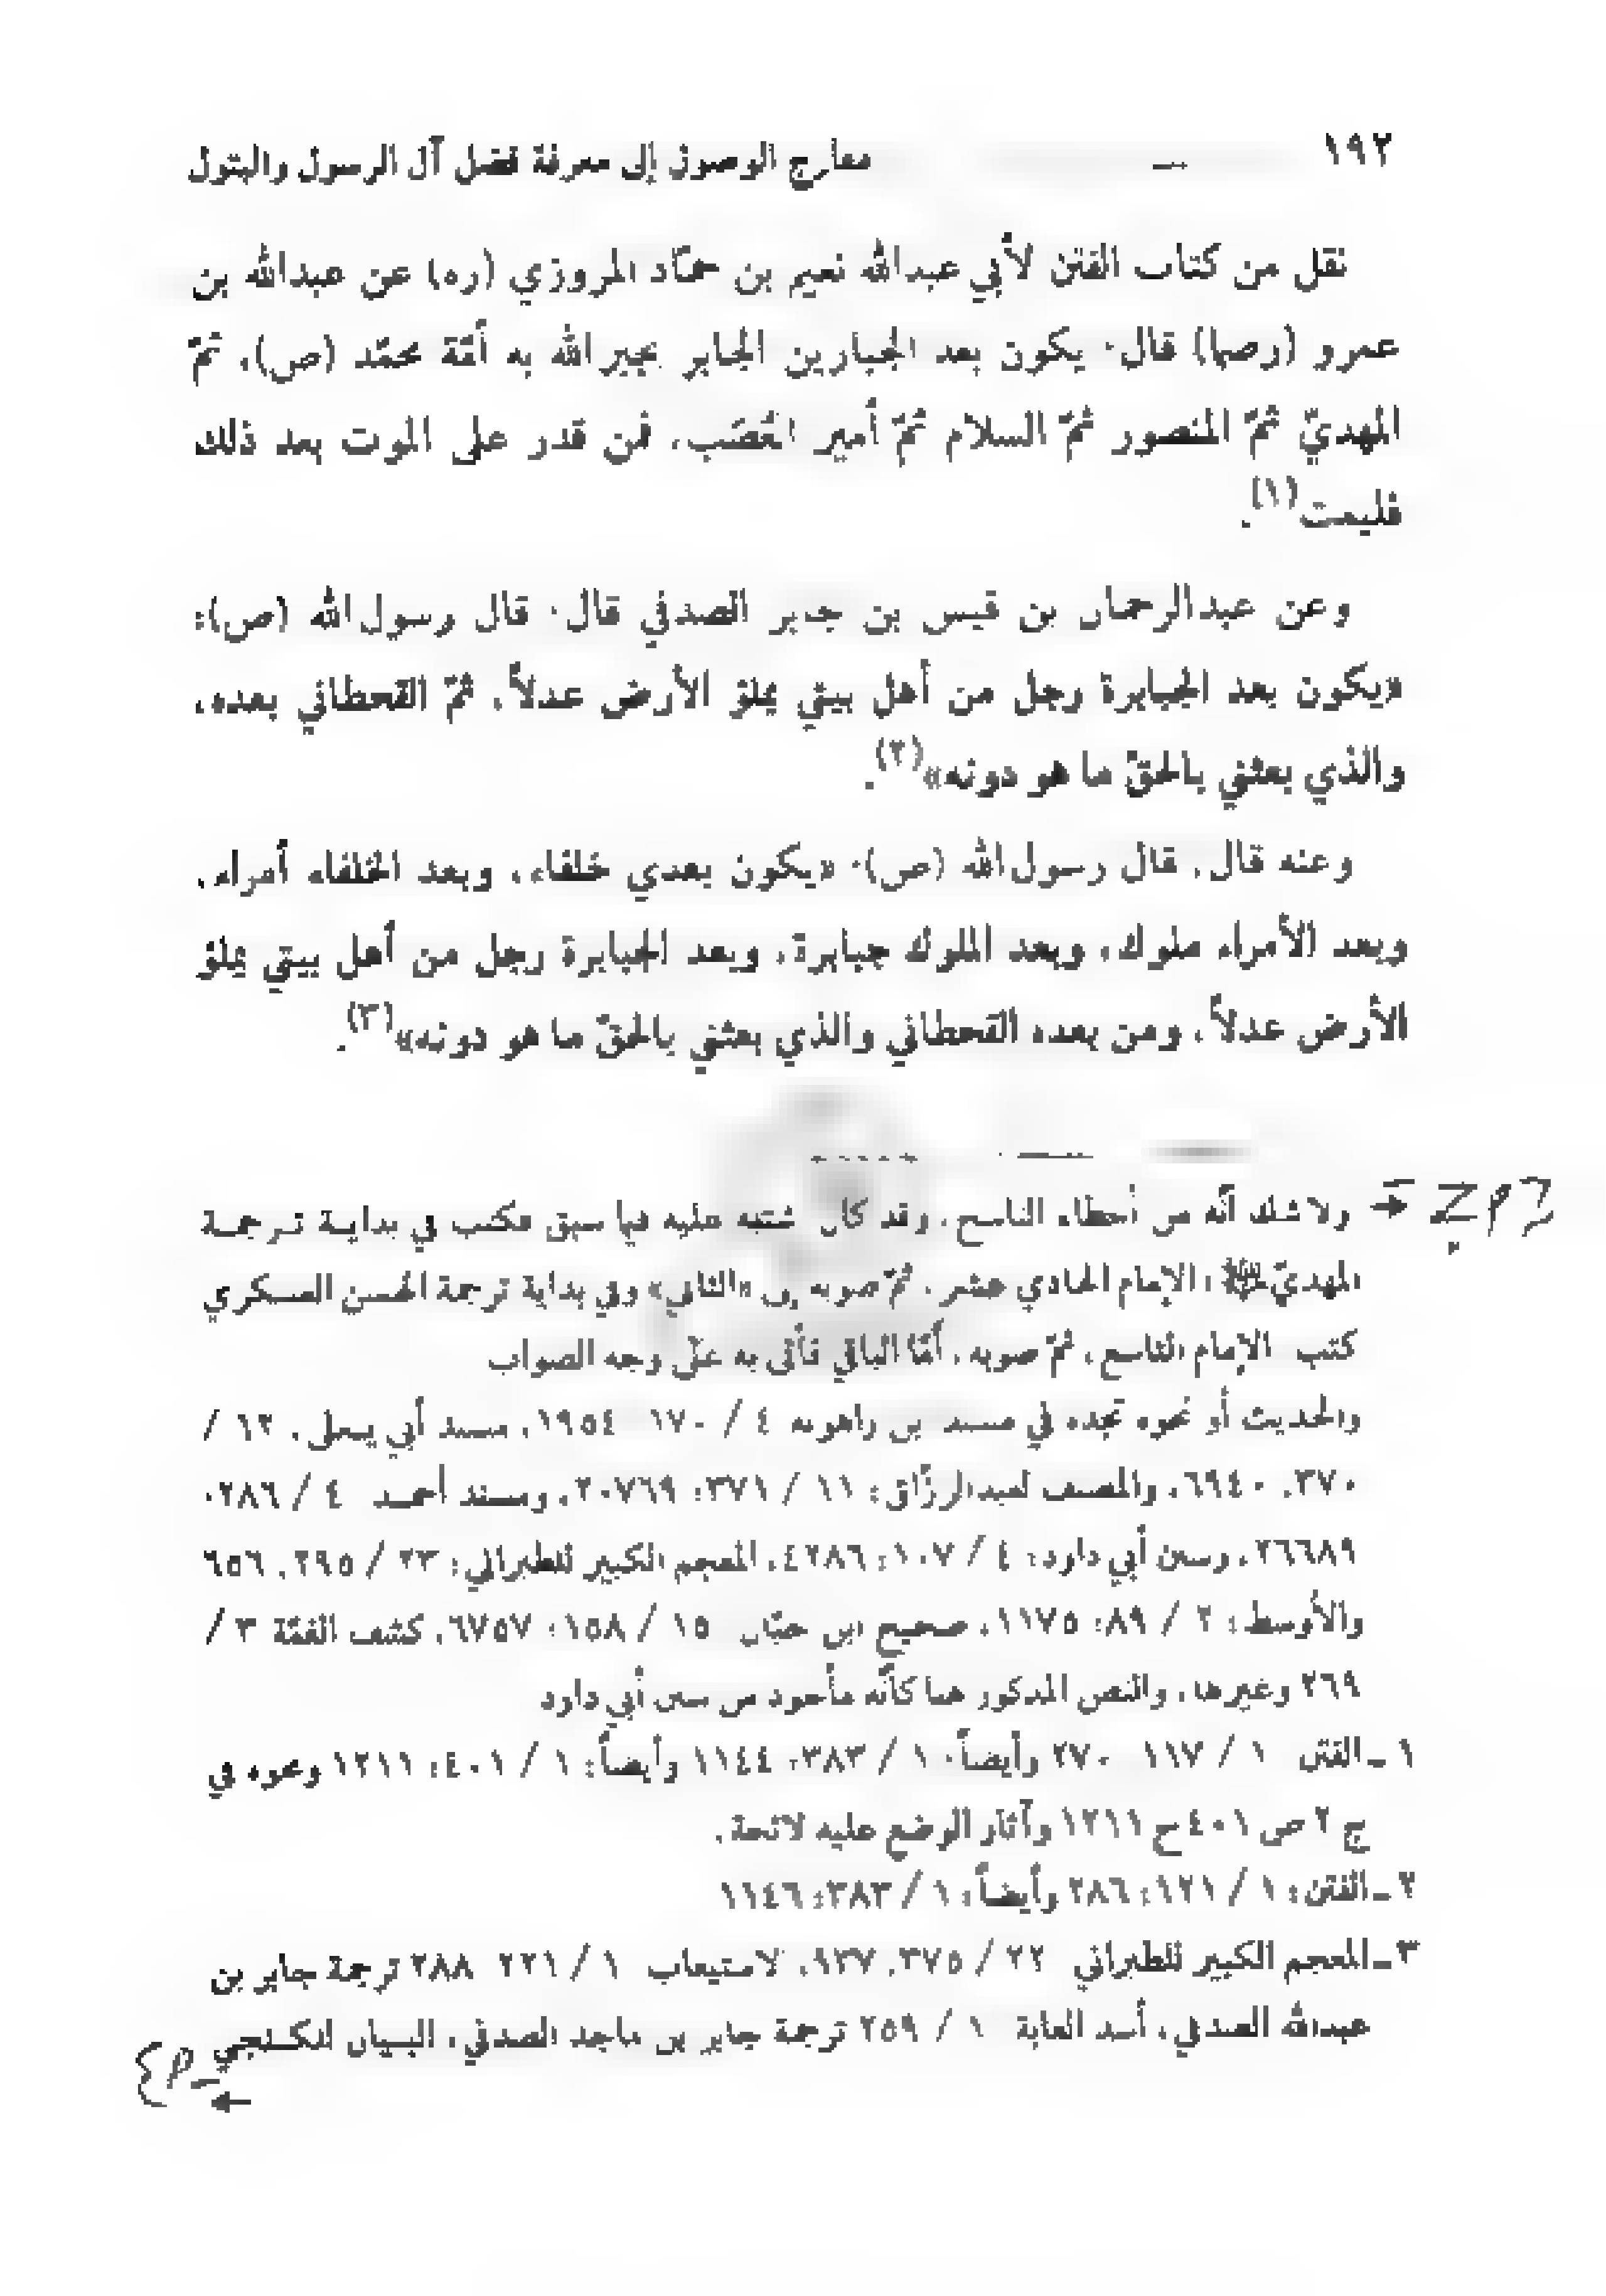 ١٩٢ معارج الوصول إلى معرفة فضل آل الرسول والبتول
نقل من كتاب الفتن لأبي عبدالله نعيم بن حمّاد المروزي (ره) عن عبدالله بن
عمرو (رضها) قال: يكون بعد الجبارين الجابر يجبر الله به أمّة محمّد (ص)، ثمّ
المهديّ ثمّ المنصور ثمّ السلام ثمّ أمير العُصَب، فمن قدر على الموت بعد ذلك
فليمت(١).
وعن عبدالرحمان بن قيس بن جابر الصدفي قال: قال رسول الله (ص):
«يكون بعد الجبابرة رجل من أهل بيتي يملؤ الأرض عدلاً، ثمّ القحطاني بعده،
والذي بعثني بالحقّ ما هو دونه»(٢).
وعنه قال: قال رسول الله (ص): «يكون بعدي خلفاء، وبعد الخلفاء أمراء،
وبعد الأمراء ملوك، وبعد الملوك جبابرة، وبعد الجبابرة رجل من أهل بيتي يملؤ
الأرض عدلاً، ومن بعده القحطاني والذي بعثني بالحقّ ما هو دونه»(٣).
ولا شك أنّه من أخطاء الناسخ، وقد كان اشتبه عليه فيما سبق فكتب في بداية ترجمة
المهديّ، الإمام الحادي عشر، ثمّ صوبه إلى «الثاني» وفي بداية ترجمة الحسن العسكري
كتب الإمام التاسع، ثمّ صوبه، أمّا الباقي فأتى به على وجه الصواب
والحديث أو نحوه تجده في مسند ابن راهويه ٤ / ١٧٠ ١٩٥٤، مسند أبي يعلى، ١٢ /
٣٧٠، ٦٩٤٠، والمصنف لعبد الرزّاق: ١١ / ٣٧١: ٢٠٧٦٩، ومسند أحمد ٤ / ٢٨٦.
٢٦٦٨٩، وسنن أبي داود: ٤ / ١٠٧: ٤٢٨٦، المعجم الكبير للطبراني: ٢٣ / ٢٩٥، ٦٥٦
والأوسط: ٢ / ٨٩: ١١٧٥، صحيح ابن حبّان ١٥ / ١٥٨: ٦٧٥٧، كشف الغمّة ٣ /
٢٦٩ وغيرها، والنص المذكور هنا كأنّه مأخوذ من سنن أبي داود
١ ـ الفتن ١ / ١١٧ ٢٧٠ وأيضاً: ١ / ٣٨٣: ١١٤٤ وأيضاً: ١ / ٤٠١: ١٢١١ ونحوه في
ج ٢ ص ٤٠١ ح ١٢١١ وآثار الوضع عليه لائحة.
٢ ـ الفتن: ١ / ١٢١: ٢٨٦ وأيضاً: ١ / ٣٨٣: ١١٤٦
٣ ـ المعجم الكبير للطبراني ٢٢ / ٣٧٥، ٩٣٧، الاستيعاب ١ / ٢٢١ ٢٨٨ ترجمة جابر بن
عبدالله الصدفي، أسد الغابة ١ / ٢٥٩ ترجمة جابر بن ماجد الصدفي، البيان للكنجي